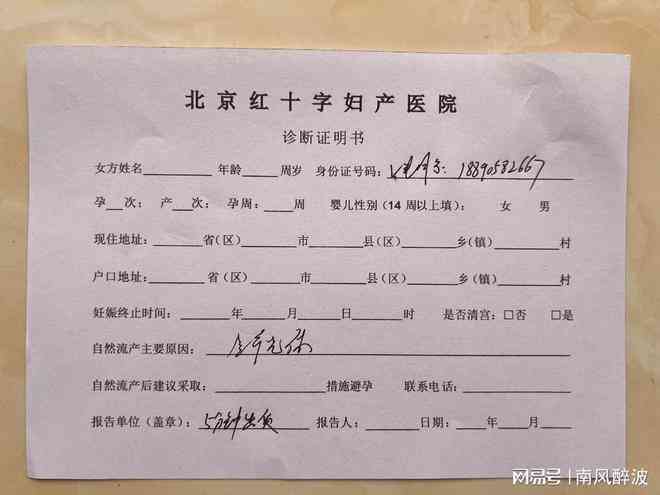 北京红十字妇产医院
诊断证明书
女方姓名________ 年龄____周岁 身份证号码: 18890582667
孕__次; 产__次; 孕周:____周 婴儿性别(14周以上填): 女 男
现住地址:______省(区)________市________县(区)________乡(镇)________村
户口地址:______省(区)________市________县(区)________乡(镇)________村
妊娠终止时间:________年______月______日______时 是否清宫:□否 □是
自然流产主要原因:
自然流产后建议采取:______________措施避孕 联系电话:______________
报告单位(盖章): 5分钟出货 报告人:________日期:____年____月____
网易号|南风醉波